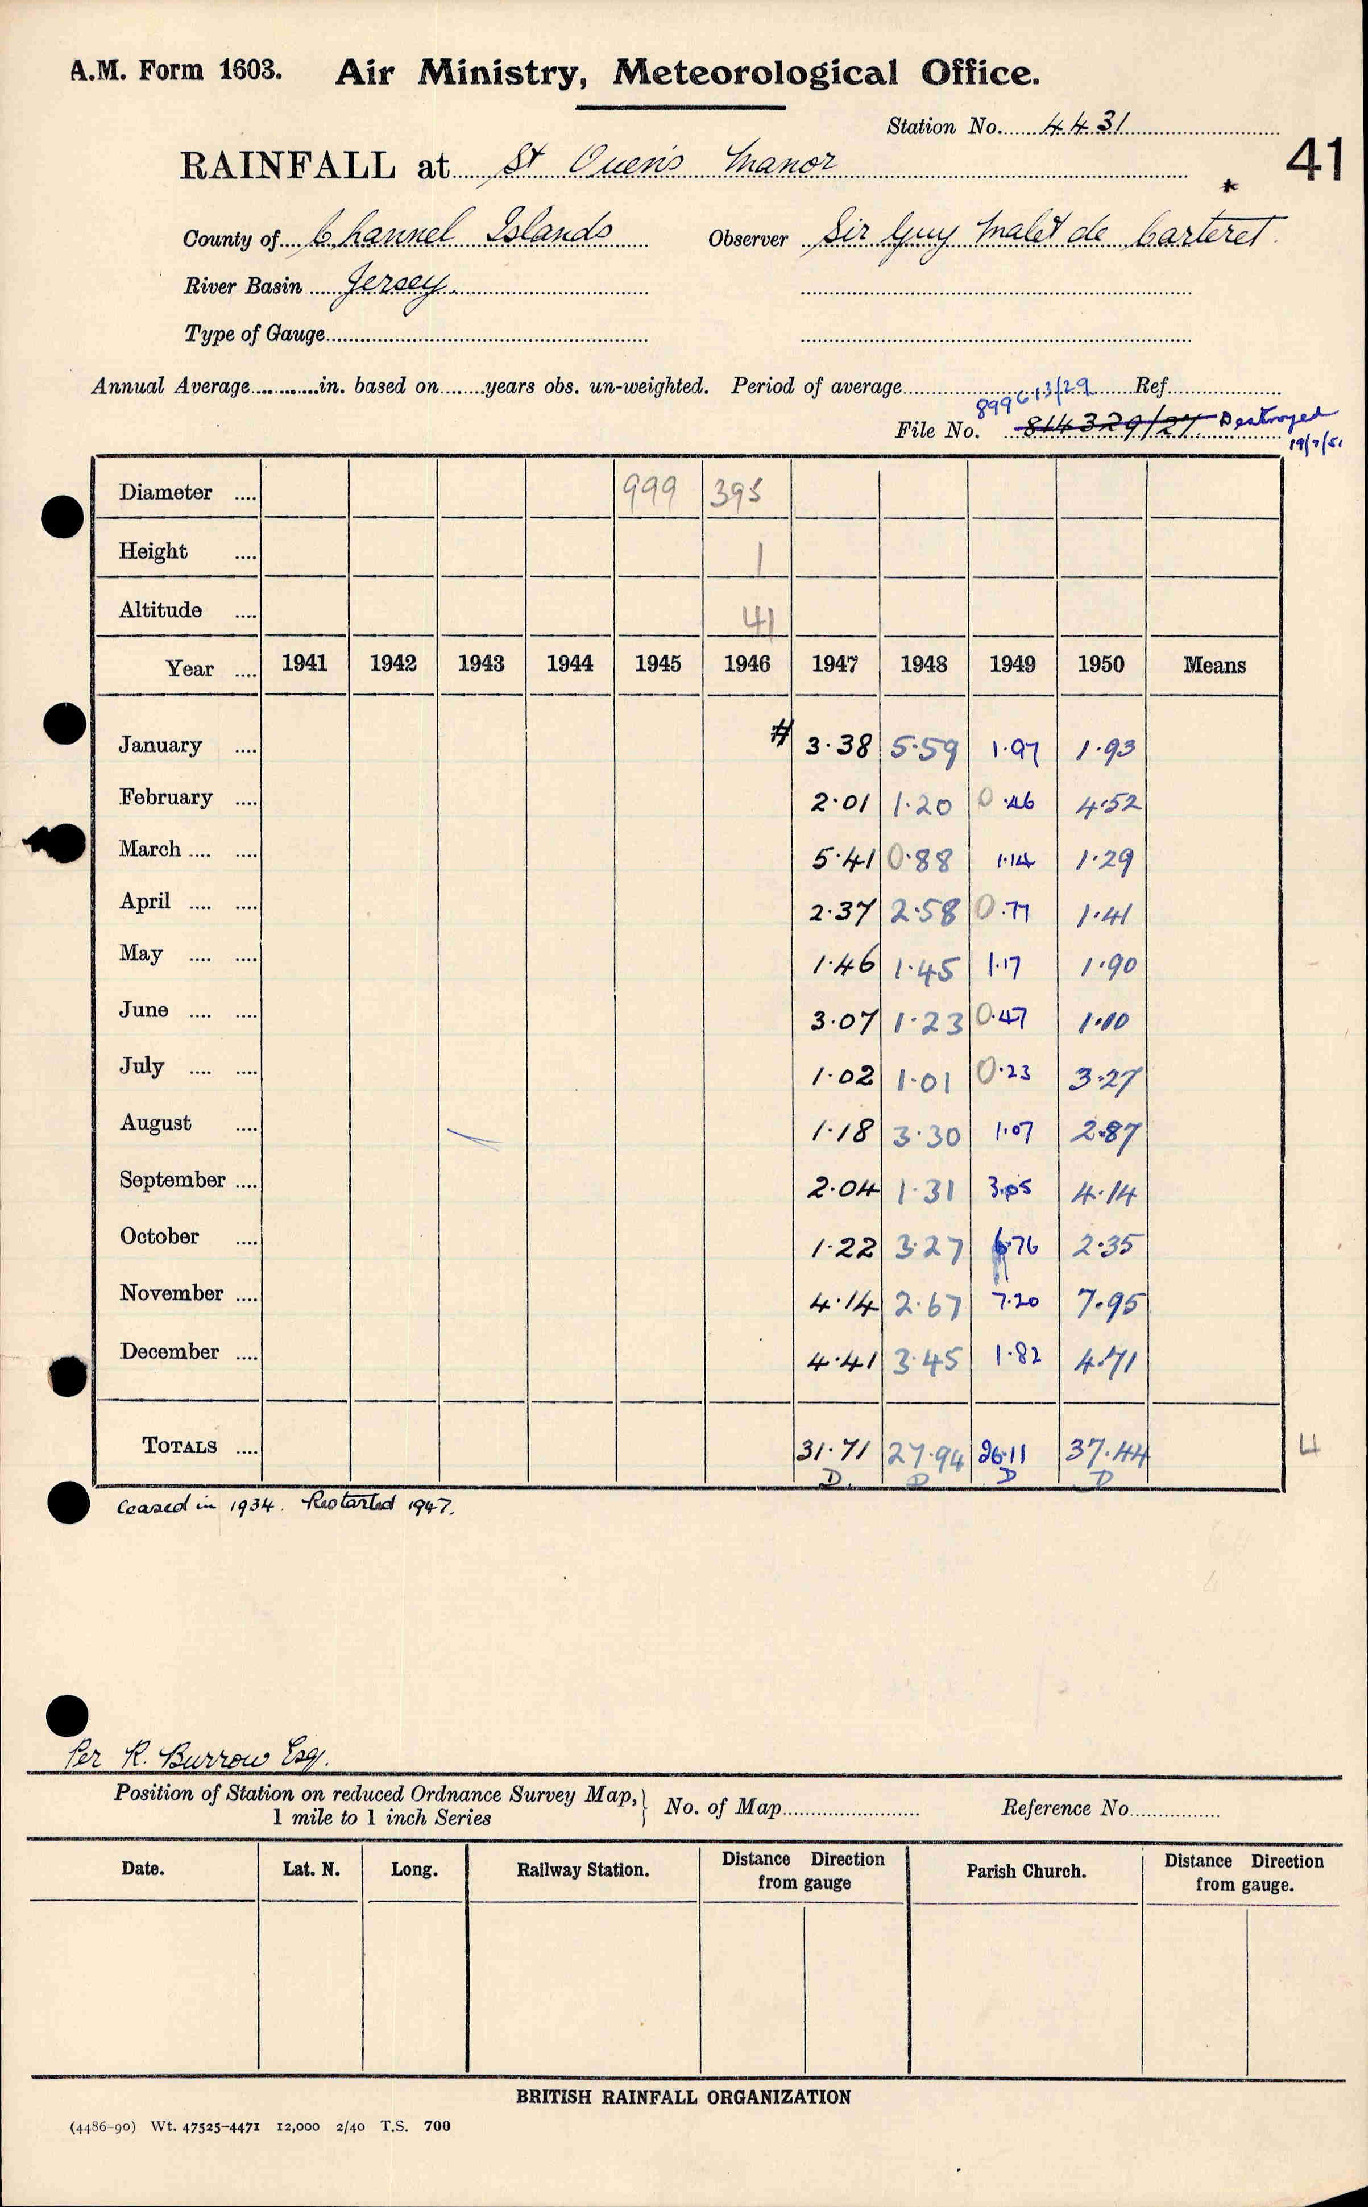 A.M. Form 1603. Air Ministry, Meteorological Office.
Station No. 4431
41
RAINFALL at St Ouen's Manor *
County of Channel Islands Observer Sir Guy Malet de Carteret.
River Basin Jersey.
Type of Gauge
Annual Average in. based on years obs. un-weighted. Period of average Ref
899613/29
File No. 814329/27. Destroyed
19/7/51
Diameter .... 999 395
Height .... 1
Altitude .... 41
Year .... 1941 1942 1943 1944 1945 1946 1947 1948 1949 1950 Means
January .... # 3.38 5.59 1.97 1.93
February .... 2.01 1.20 0.46 4.52
March .... .... 5.41 0.88 1.14 1.29
April .... .... 2.37 2.58 0.77 1.41
May .... .... 1.46 1.45 1.17 1.90
June .... .... 3.07 1.23 0.47 1.10
July .... .... 1.02 1.01 0.23 3.27
August .... 1.18 3.30 1.07 2.87
September .... 2.04 1.31 3.05 4.14
October .... 1.22 3.27 6.76 2.35
November .... 4.14 2.67 7.20 7.95
December .... 4.41 3.45 1.82 4.71
TOTALS .... 31.71 27.94 26.11 37.44
D. D D D
Ceased in 1934. Restarted 1947.
Per R. Burrow Esq.
Position of Station on reduced Ordnance Survey Map, 1 mile to 1 inch Series } No. of Map Reference No.
Date. Lat. N. Long. Railway Station. Distance Direction from gauge Parish Church. Distance Direction from gauge.
BRITISH RAINFALL ORGANIZATION
(4486-90) Wt. 47525-4471 12,000 2/40 T.S. 700